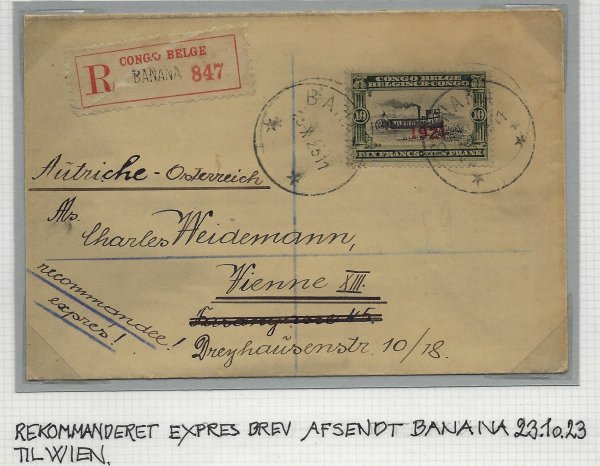 CONGO BELGE
R BANANA 847
BANANA
CONGO BELGE
BELGISCH-CONGO
10 10
1921
DIX FRANCS - TIEN FRANK
Autriche - Osterreich
Ms.
Charles Weidemann,
Vienne XIII.
45.
Dreyhausenstr. 10/18.
recommandee!
expres!
REKOMMANDERET EXPRES BREV AFSENDT BANANA 23.10.23
TIL WIEN.